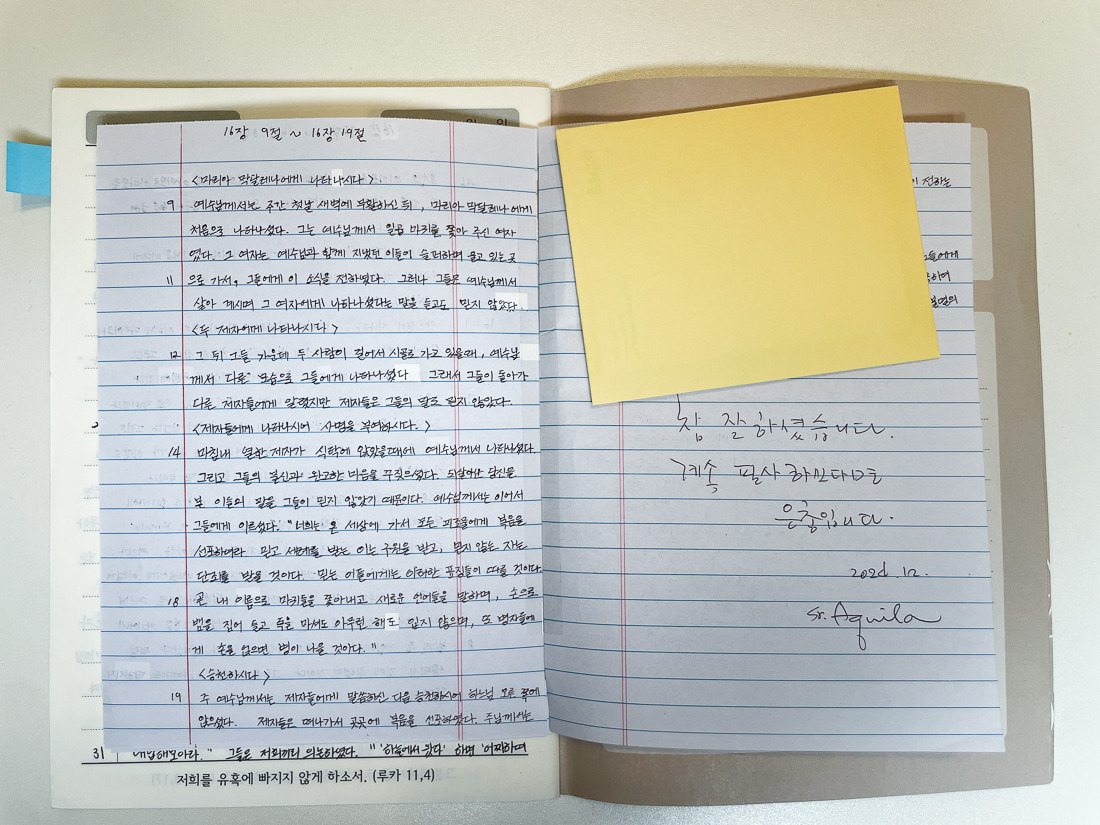 16장 9절 ~ 16장 19절
<마리아 막달레나에게 나타나시다>
9 예수님께서는 주간 첫날 새벽에 부활하신 뒤, 마리아 막달레나에게
처음으로 나타나셨다. 그는 예수님께서 일곱 마귀를 쫓아 주신 여자
였다. 그 여자는 예수님과 함께 지냈던 이들이 슬퍼하며 울고 있는 곳
11 으로 가서, 그들에게 이 소식을 전하였다. 그러나 그들은 예수님께서
살아 계시며 그 여자에게 나타나셨다는 말을 듣고도 믿지 않았다.
<두 제자에게 나타나시다>
12 그 뒤 그들 가운데 두 사람이 걸어서 시골로 가고 있을때, 예수님
께서 다른 모습으로 그들에게 나타나셨다 그래서 그들이 돌아가
다른 제자들에게 알렸지만 제자들은 그들의 말도 믿지 않았다.
<제자들에게 나타나시어 사명을 부여하시다.>
14 마침내 열한 제자가 식탁에 앉았을때에 예수님께서 나타나셨다.
그리고 그들의 불신과 완고한 마음을 꾸짖으셨다. 되살아난 당신을
본 이들의 말을 그들이 믿지 않았기 때문이다. 예수님께서는 이어서
그들에게 이르셨다. "너희는 온 세상에 가서 모든 피조물에게 복음을
선포하여라 믿고 세례를 받는 이는 구원을 받고, 믿지 않는 자는
단죄를 받을 것이다. 믿는 이들에게는 이러한 표징들이 따를 것이다.
18 곧 내 이름으로 마귀들을 쫓아내고 새로운 언어들을 말하며, 손으로
뱀을 집어 들고 독을 마셔도 아무런 해도 입지 않으며, 또 병자들에
게 손을 얹으면 병이 나을 것이다."
<승천하시다>
19 주 예수님께서는 제자들에게 말씀하신 다음 승천하시어 하느님 오른 쪽에
앉으셨다. 제자들은 떠나가서 곳곳에 복음을 선포하였다. 주님께서는
31 대답해보아라." 그들은 저희끼리 의논하였다. "'하늘에서 왔다' 하면 '어찌하여
저희를 유혹에 빠지지 않게 하소서. (루카 11,4)
이 전하는
그들에게
하여
불멸의
참 잘 하셨습니다.
계속 필사 하신다면
은총입니다.
2024. 12.
Sr. Aquila